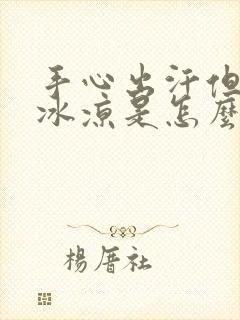 手心出汗但
冰凉是怎麼
楊厝社